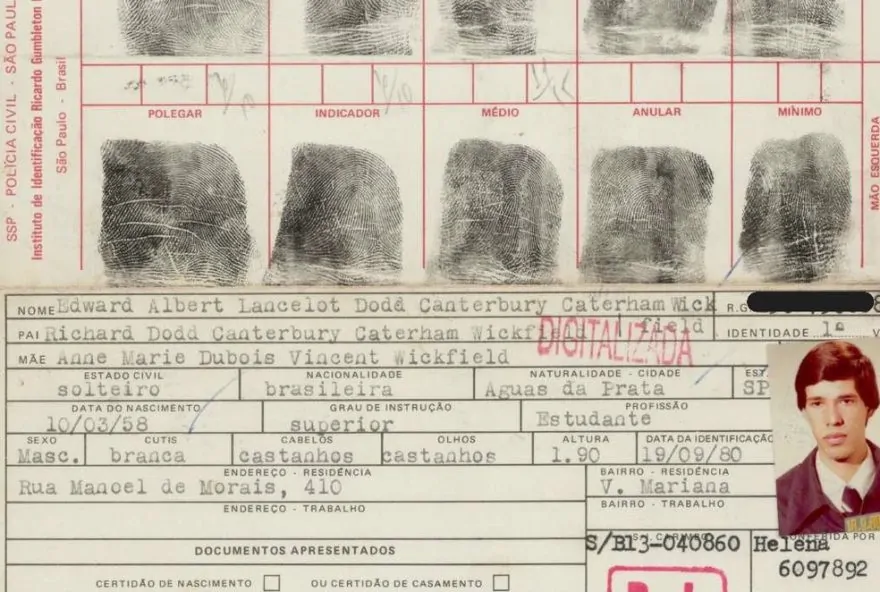 SSP - POLÍCIA CIVIL - SÃO PAUL
Instituto de Identificação Ricardo Gumbleton
São Paulo - Brasil
POLEGAR INDICADOR MÉDIO ANULAR MÍNIMO
MÃO ESQUERDA
NOME Edward Albert Lancelot Dodd Canterbury Caterham Wick R.G.
field
PAI Richard Dodd Canterbury Caterham Wickfield IDENTIDADE 1ª V
DIGITALIZADA
MÃE Anne Marie Dubois Vincent Wickfield
ESTADO CIVIL NACIONALIDADE NATURALIDADE - CIDADE EST.
solteiro brasileira Aguas da Prata SP
DATA DO NASCIMENTO GRAU DE INSTRUÇÃO PROFISSÃO
10/03/58 superior Estudante
SEXO CUTIS CABELOS OLHOS ALTURA DATA DA IDENTIFICAÇÃO
Masc. branca castanhos castanhos 1.90 19/09/80
ENDEREÇO - RESIDÊNCIA BAIRRO - RESIDÊNCIA
Rua Manoel de Morais, 410 V. Mariana
ENDEREÇO - TRABALHO BAIRRO - TRABALHO
CONFERIDA POR
DOCUMENTOS APRESENTADOS S/B13-040860 Helena
6097892
CERTIDÃO DE NASCIMENTO OU CERTIDÃO DE CASAMENTO